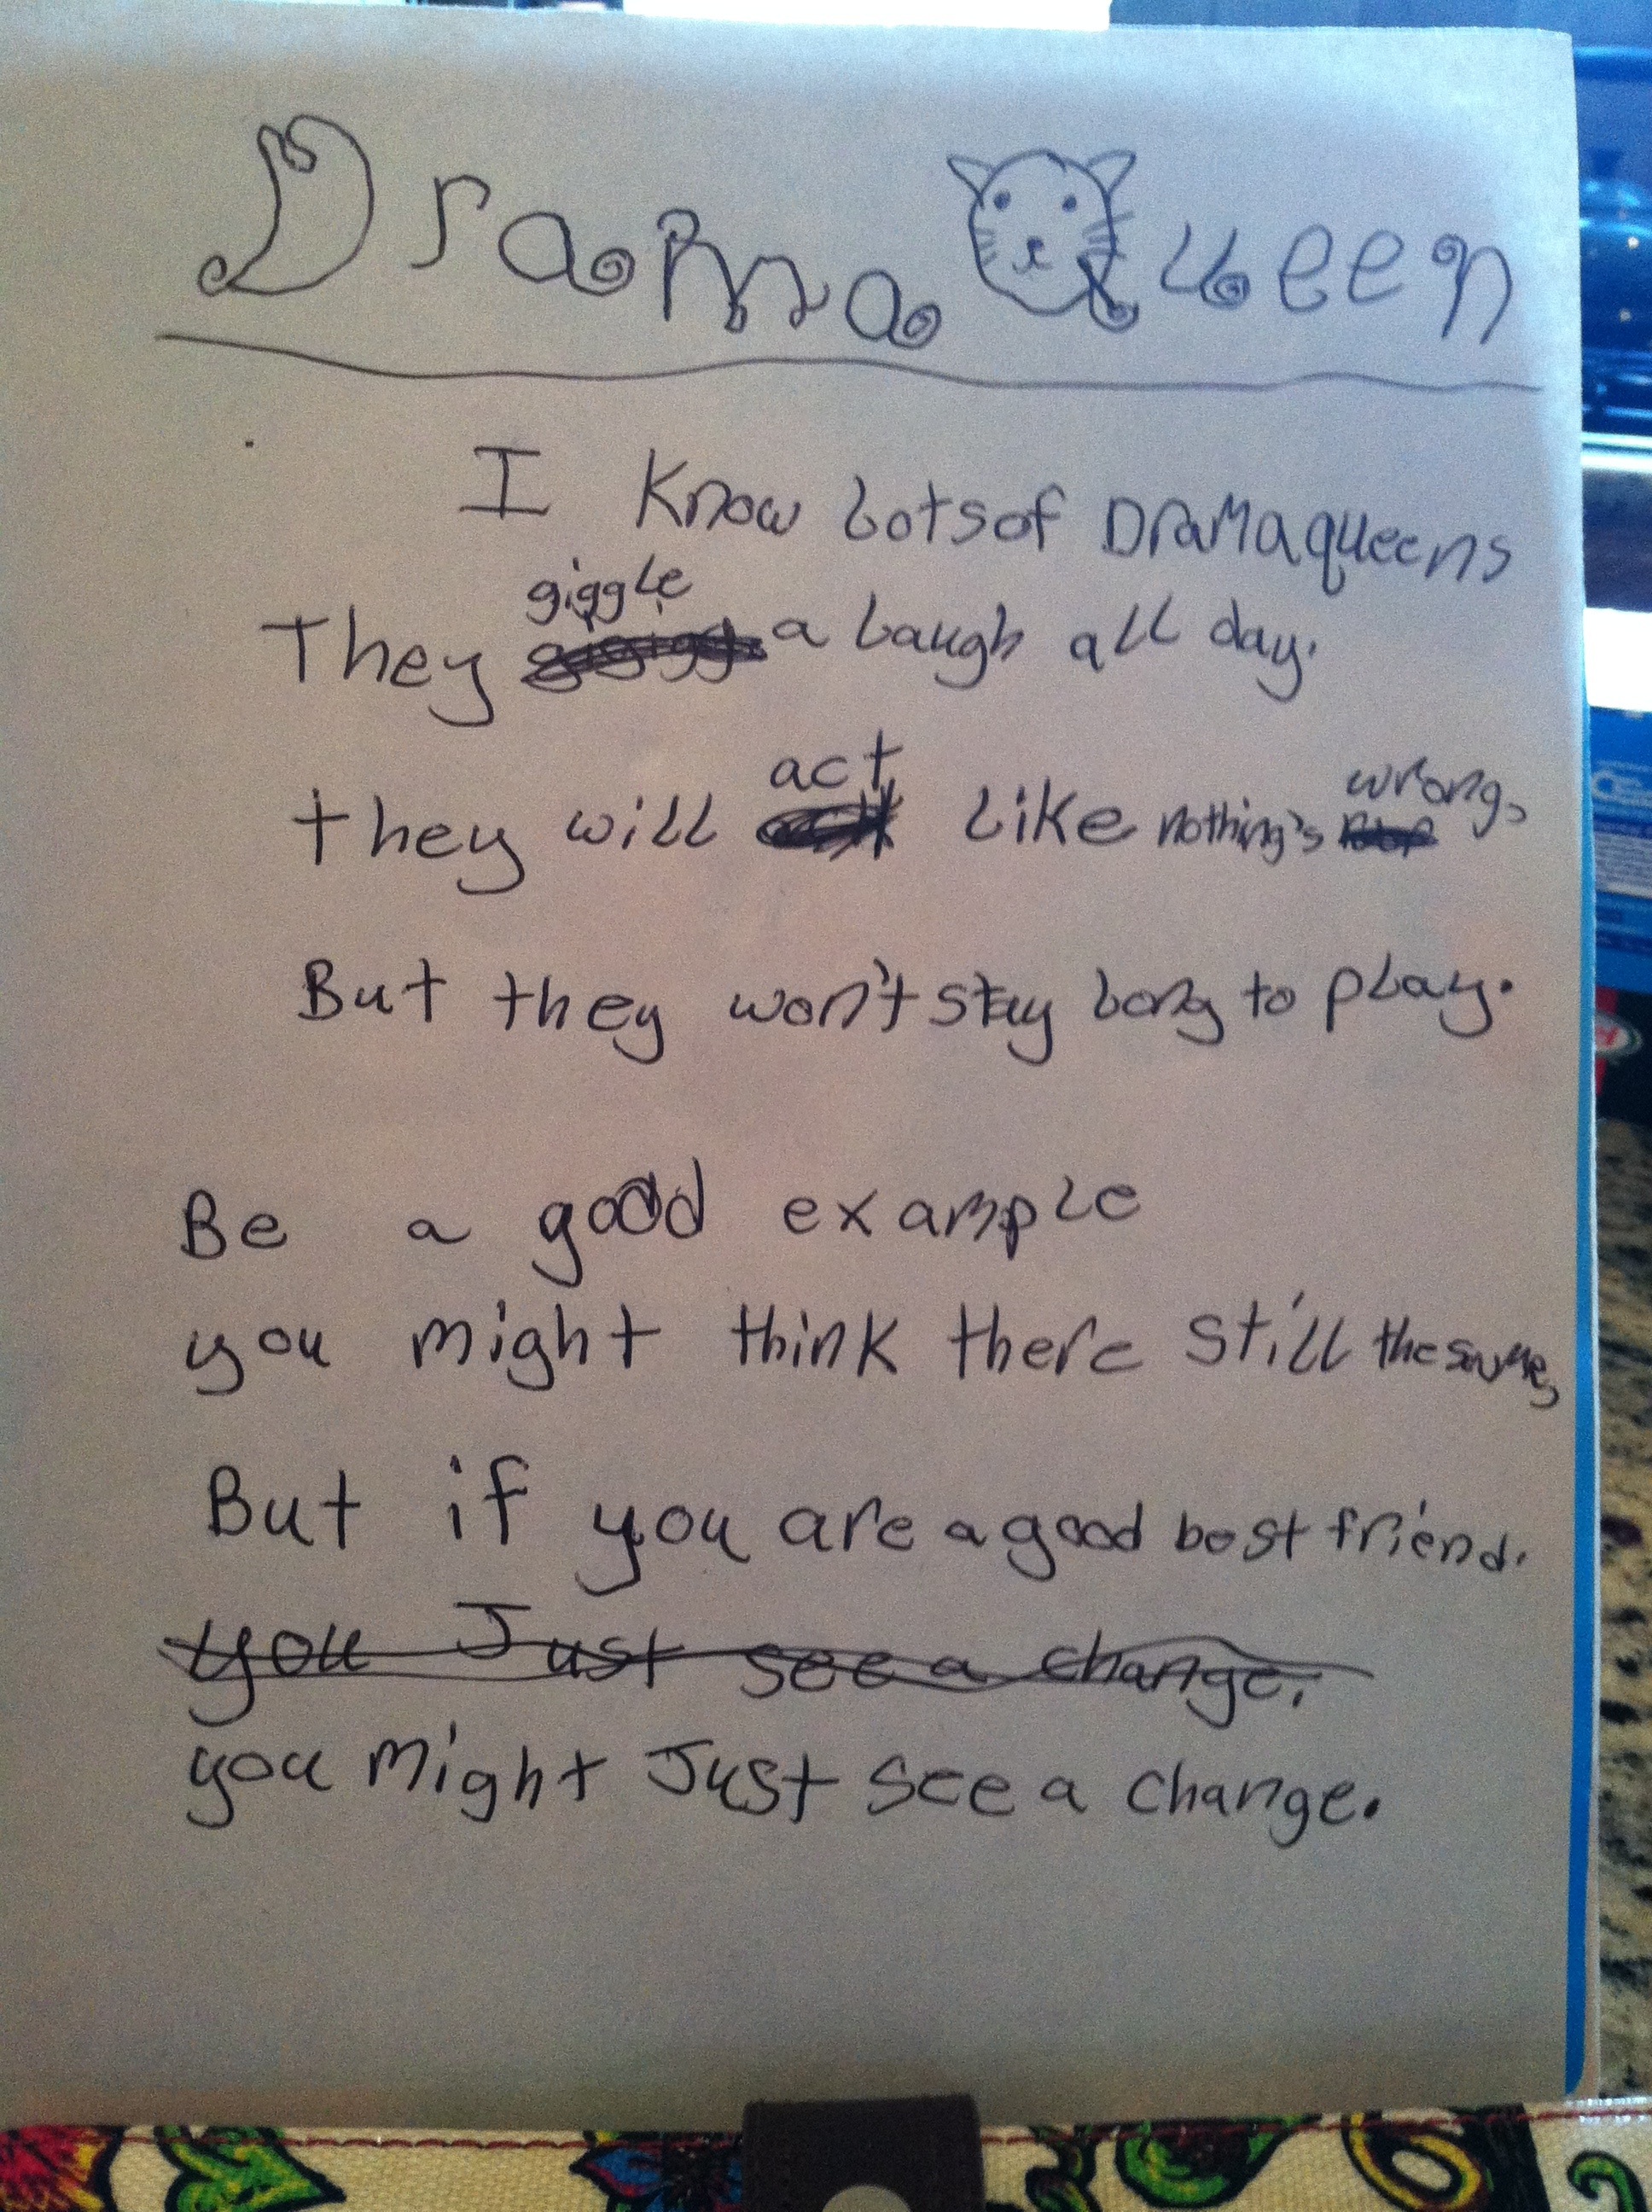 Drama Queen
I Know Lots of Drama queens
They giggle a Laugh all day.
they will act Like nothing's wrong,
But they won't stay Long to play.
Be a good example
you might think there still the same,
But if you are a good best friend.
you Just see a change.
you might Just see a change.